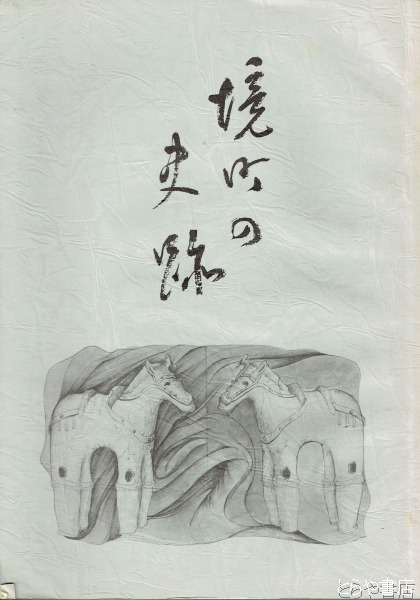 境町の
史跡
とらや書店